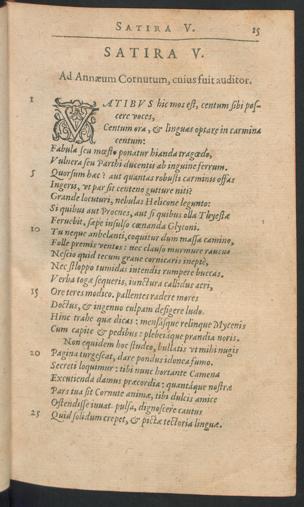 SATIRA V. 15
SATIRA V.
Ad Annæum Cornutum, cuius fuit auditor.
1 VATIBUS hic mos est, centum sibi pos-
cere voces,
Centum ora, & linguas optare in carmina
centum:
Fabula seu mœsto ponatur hianda tragœdo,
Vulnera seu Parthi ducentis ab inguine ferrum.
5 Quorsum hæc? aut quantas robusti carminis offas
Ingeris, vt par sit centeno gutture niti?
Grande locuturi, nebulas Helicone legunto:
Si quibus aut Procnes, aut si quibus olla Thyestæ
Feruebit, sæpe insulso cœnanda Glyconi.
10 Tu neque anhelanti, coquitur dum massa camino,
Folle premis ventos: nec clauso murmure raucus
Nescio quid tecum graue cornicaris ineptè,
Nec stloppo tumidas intendis rumpere buccas.
Verba togæ sequeris, iunctura callidus acri,
15 Ore teres modico, pallentes radere mores
Doctus, & ingenuo culpam defigere ludo.
Hinc trahe quæ dicas: mensasque relinque Mycenis
Cum capite & pedibus: plebeiaque prandia noris.
Non equidem hoc studeo, bullatis vt mihi nugis
20 Pagina turgescat, dare pondus idonea fumo.
Secreti loquimur: tibi nunc hortante Camena
Excutienda damus præcordia: quantáque nostræ
Pars tua sit Cornute animæ, tibi dulcis amice
Ostendisse iuuat. pulsa, dignoscere cautus
25 Quid solidum crepet, & pictæ tectoria linguæ.